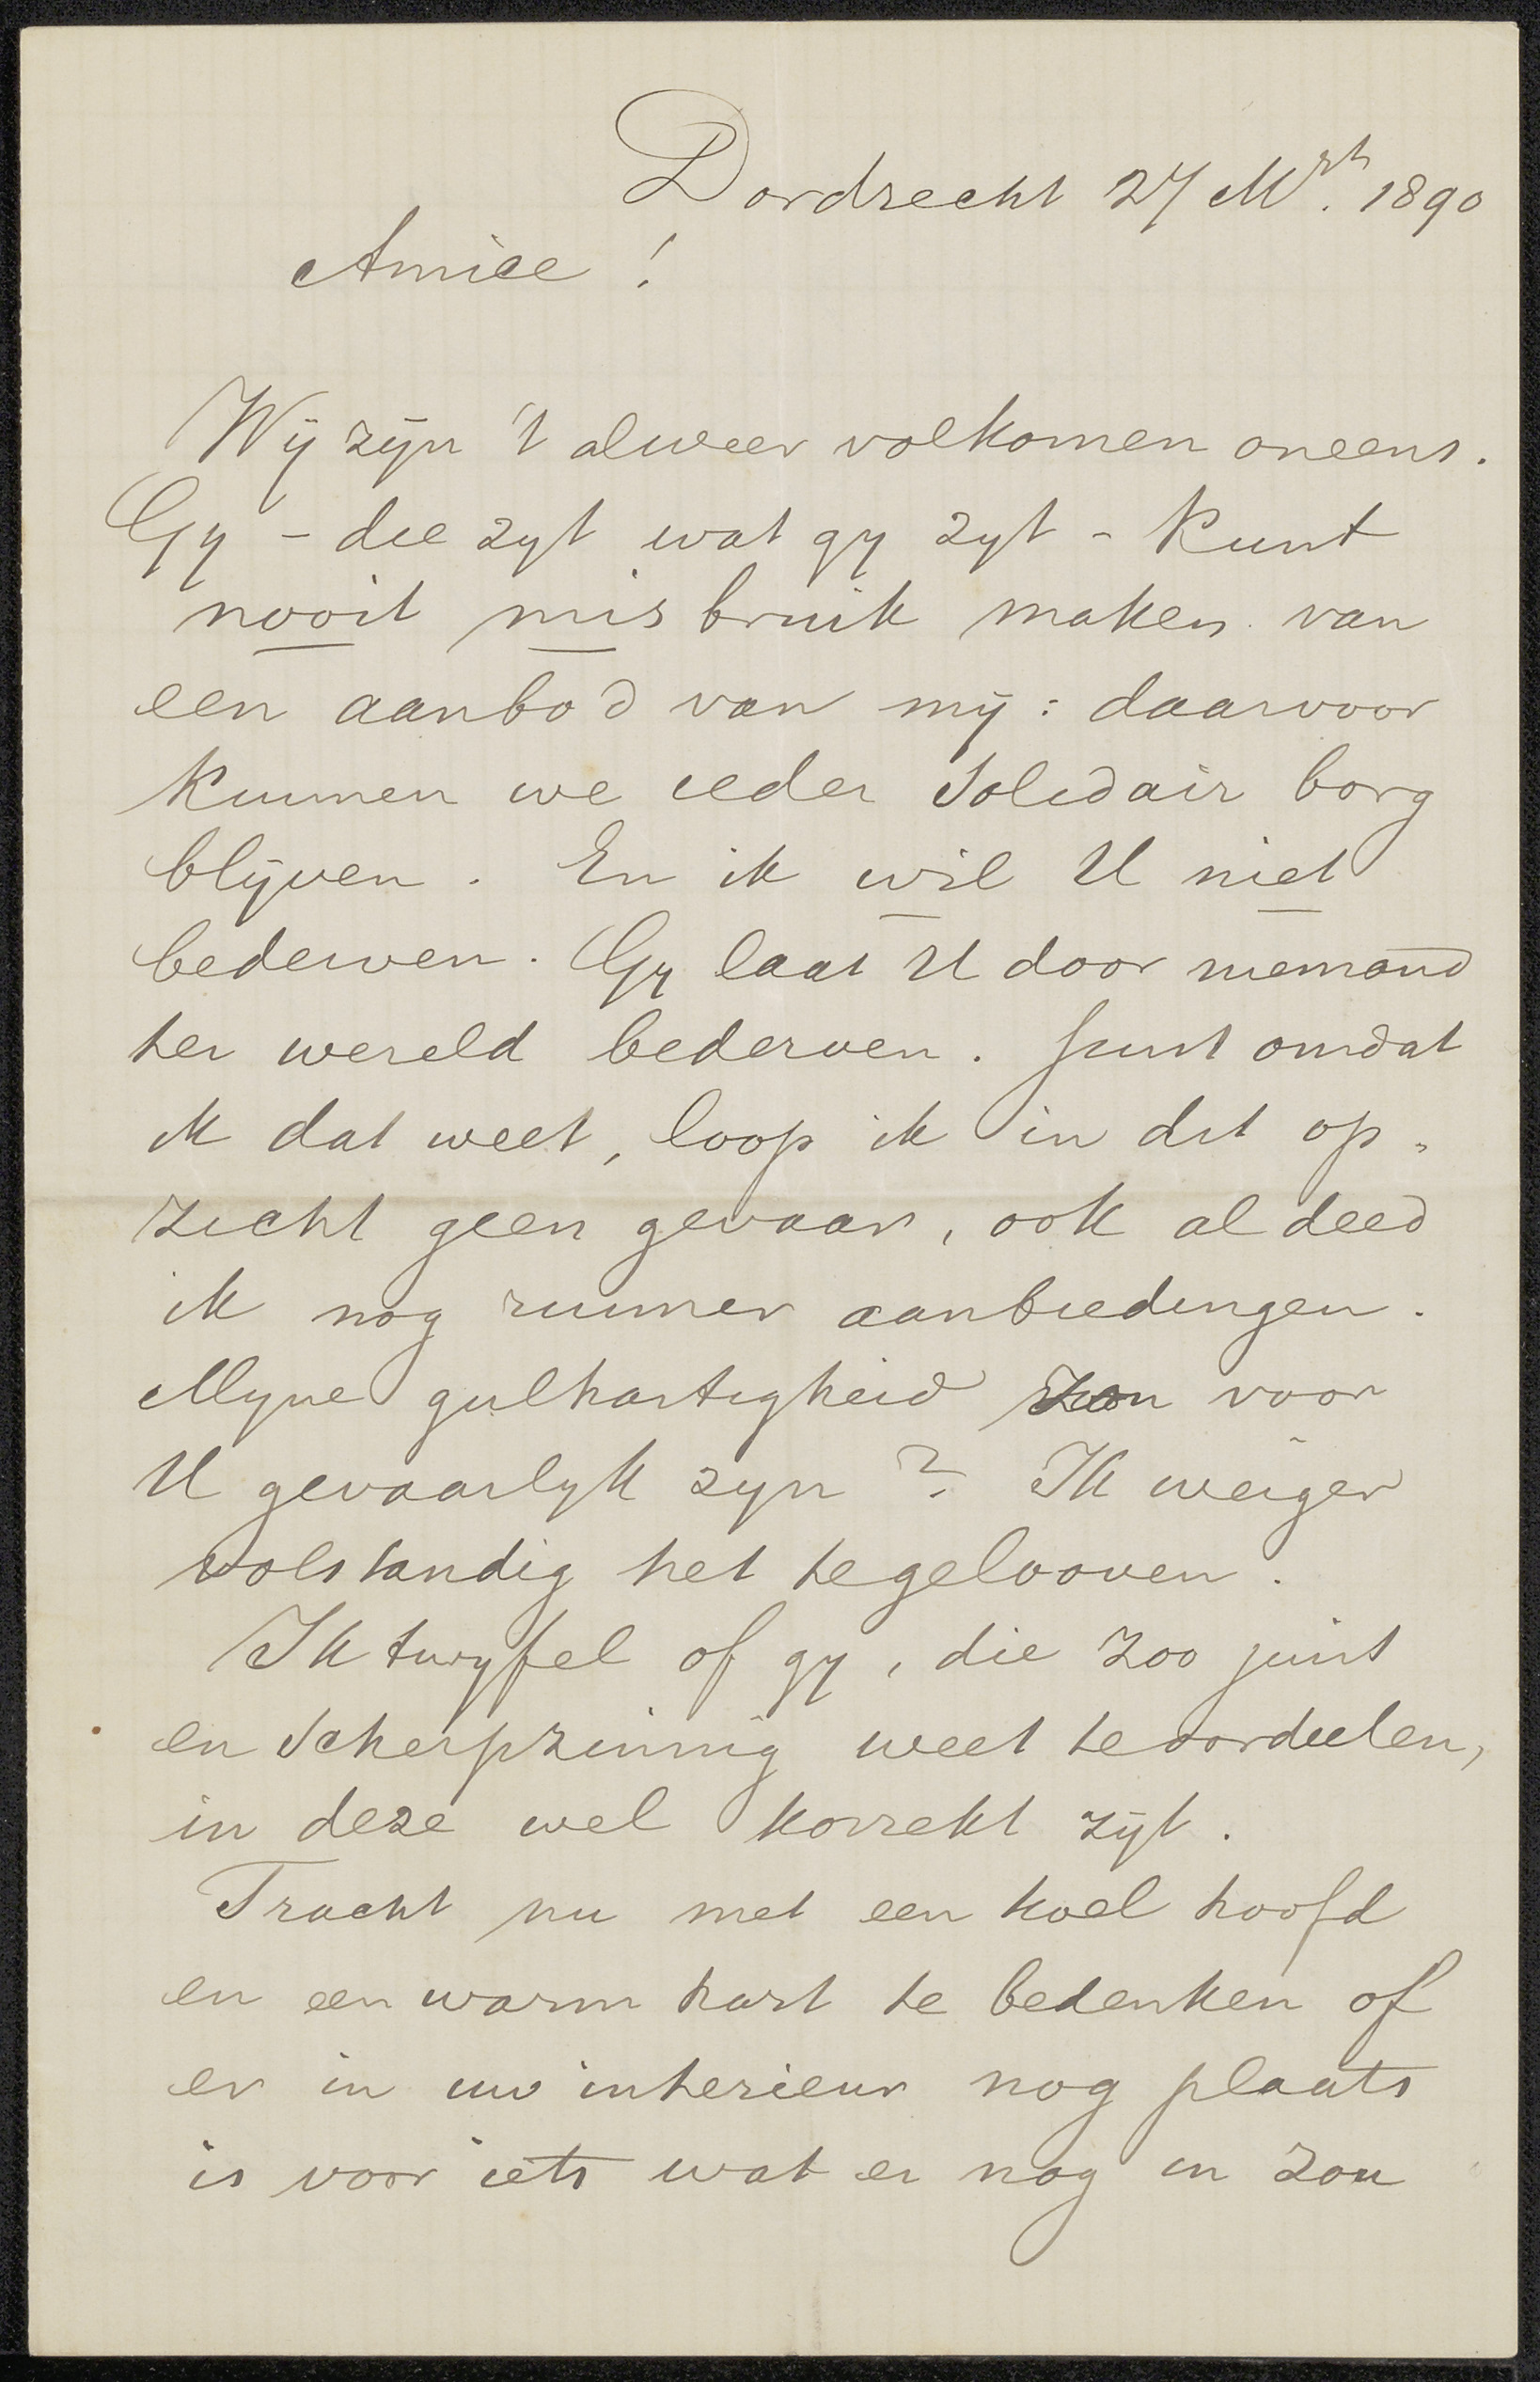 Dordrecht 27 Mrt. 1890
Amice!
Wij zijn 't alweer volkomen oneens.
Gy - die zyt wat gy zyt - kunt
nooit misbruik maken van
een aanbod van mij: daarvoor
kunnen we ieder solidair borg
blijven. En ik wil U niet
bederven. Gy laat U door niemand
ter wereld bederven. Juist omdat
ik dat weet, loop ik in dit op-
zicht geen gevaar, ook al deed
ik nog ruimer aanbiedingen.
Myne gulhartigheid zou voor
U gevaarlyk zyn? Ik weiger
volstandig het te gelooven.
Ik twyfel of gy, die zoo juist
en scherpzinnig weet te oordeelen,
in deze wel korrekt zijt.
Tracht nu met een koel hoofd
en een warm hart te bedenken of
er in uw interieur nog plaats
is voor iets wat er nog in zou